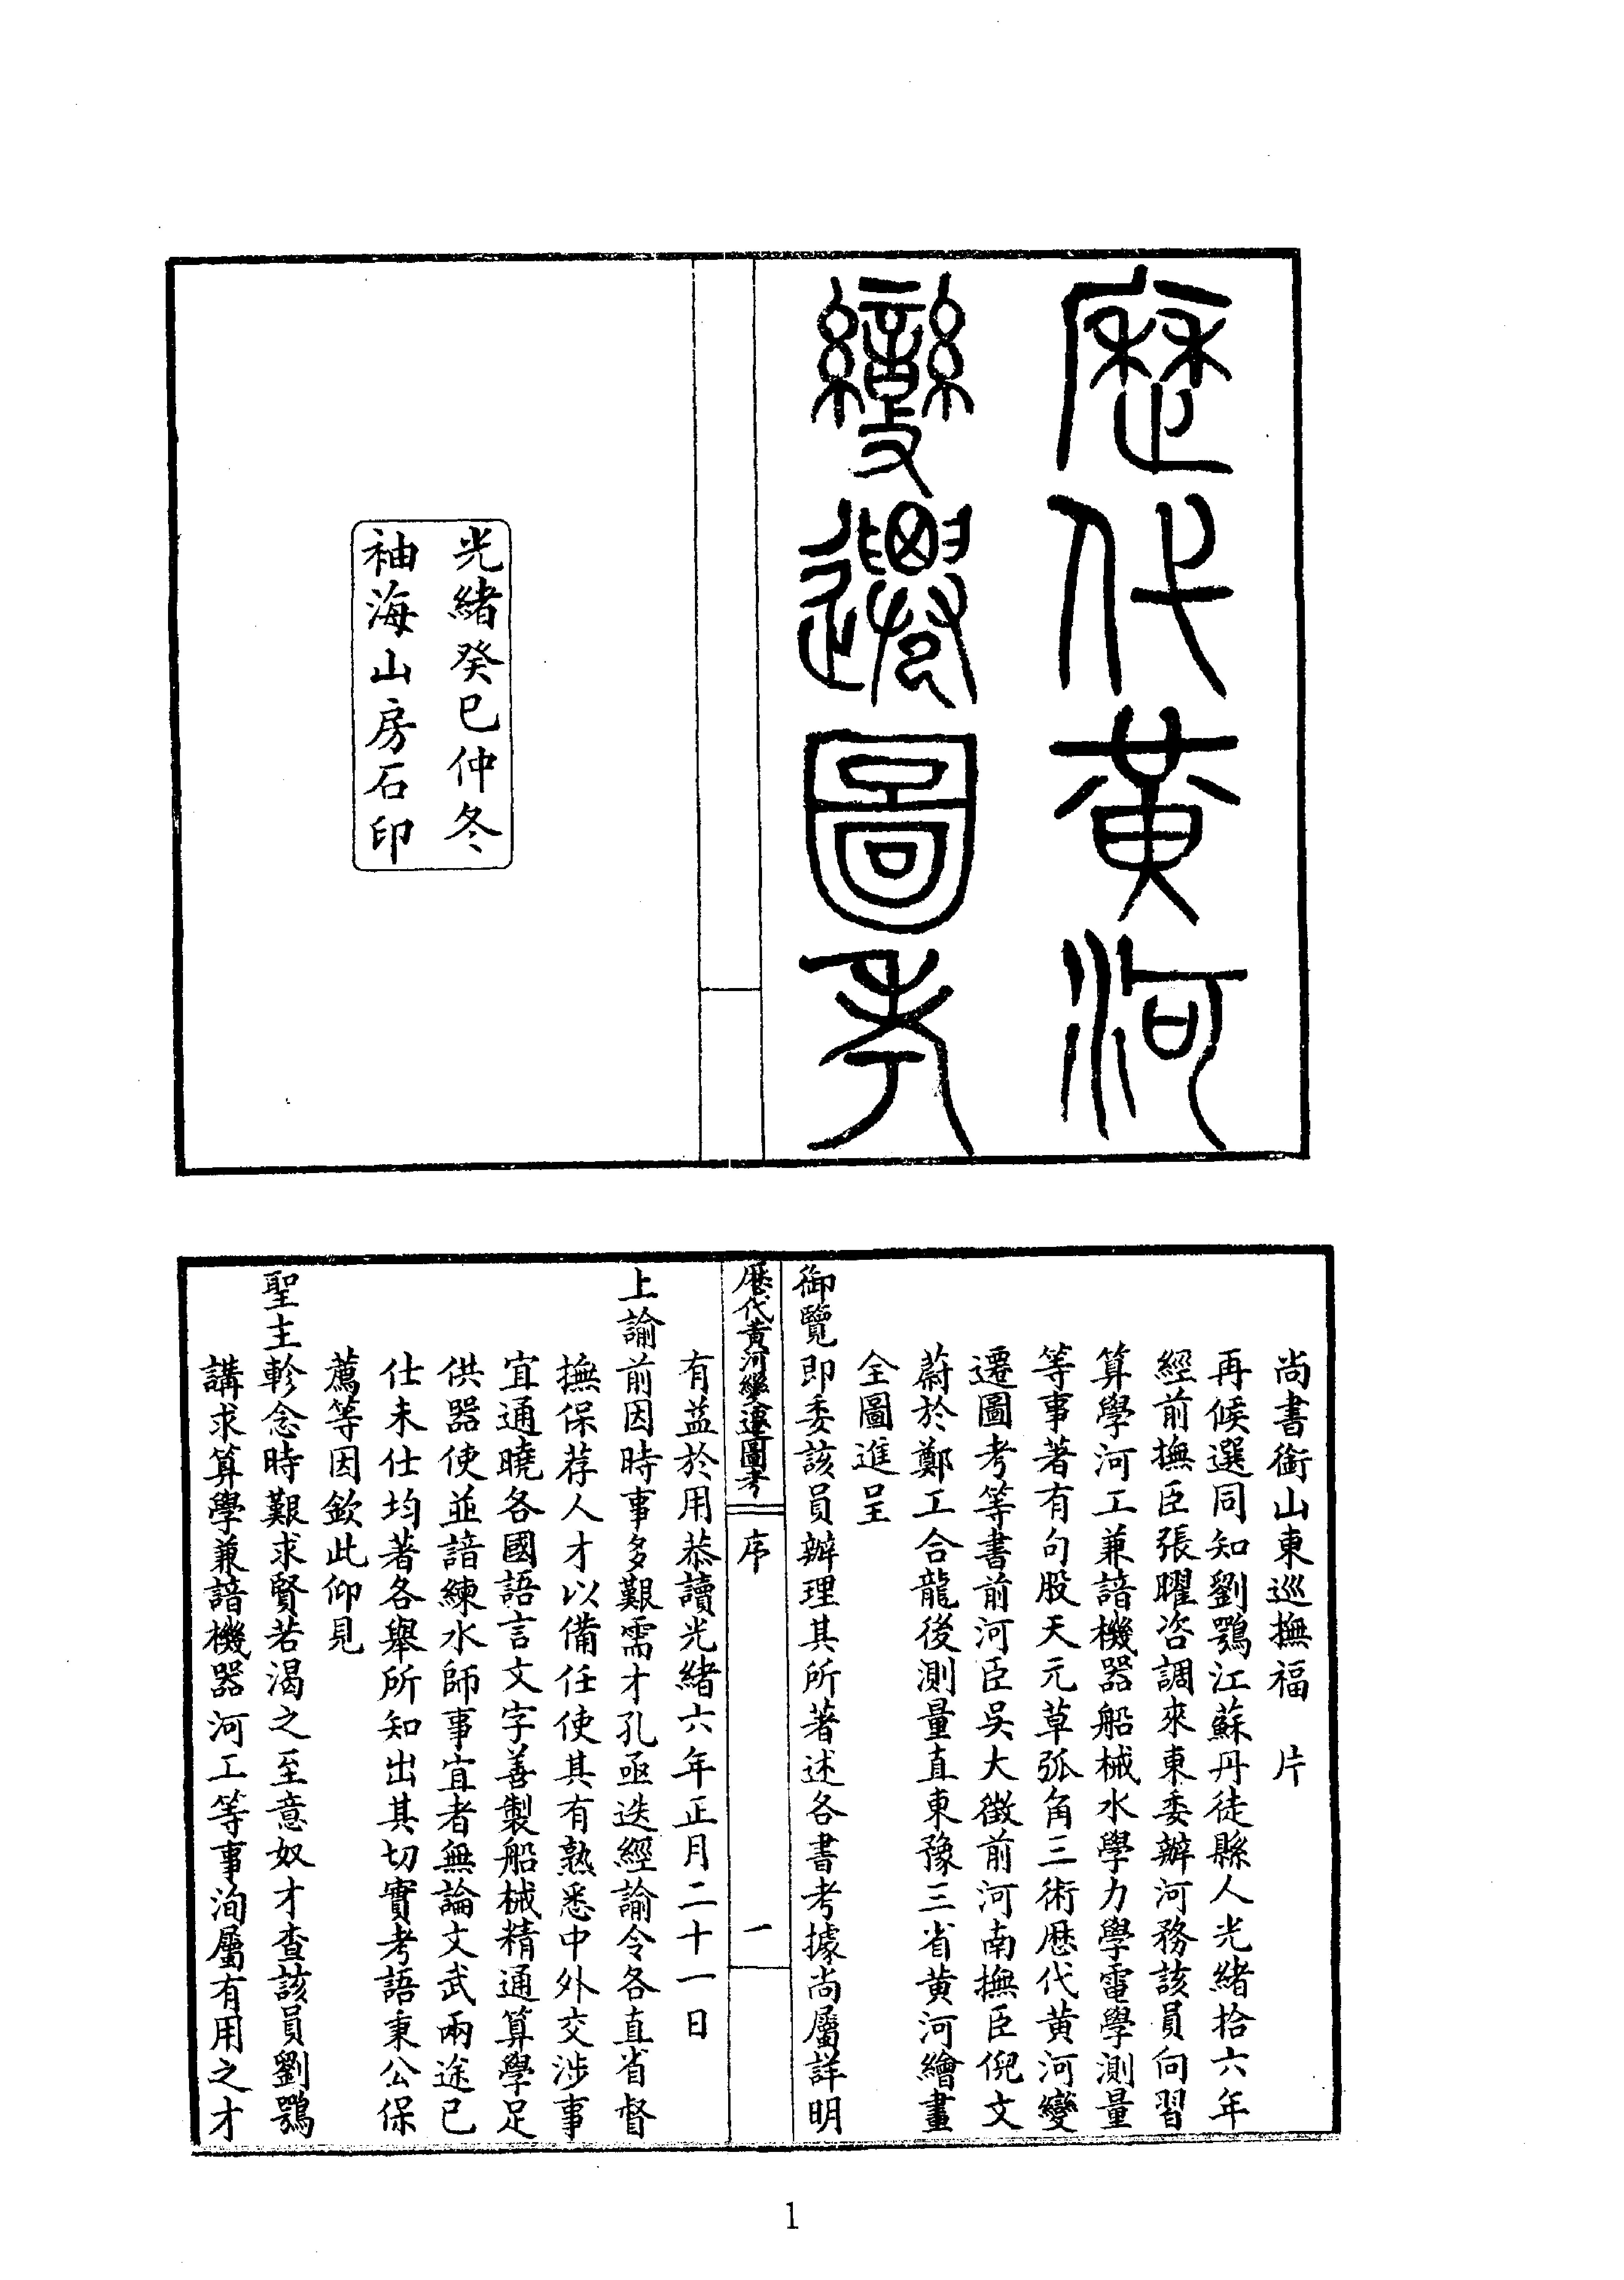 歷代黃河
變遷圖考
光緒癸巳仲冬
袖海山房石印
尚書銜山東巡撫福　片
再候選同知劉鶚江蘇丹徒縣人光緒拾六年
經前撫臣張曜咨調來東委辦河務該員向習
算學河工兼諳機器船械水學力學電學測量
等事著有句股天元草弧角三術歷代黃河變
遷圖考等書前河臣吳大澂前河南撫臣倪文
蔚於鄭工合龍後測量直東豫三省黃河繪畫
全圖進呈
御覽即委該員辦理其所著述各書考據尚屬詳明
歷代黃河變遷圖考　序　一
有益於用恭讀光緒六年正月二十一日
上諭前因時事多艱需才孔亟迭經諭令各直省督
撫保荐人才以備任使其有熟悉中外交涉事
宜通曉各國語言文字善製船械精通算學足
供器使並諳練水師事宜者無論文武兩途已
仕未仕均著各舉所知出其切實考語秉公保
薦等因欽此仰見
聖主軫念時艱求賢若渴之至意奴才查該員劉鶚
講求算學兼諳機器河工等事洵屬有用之才
1